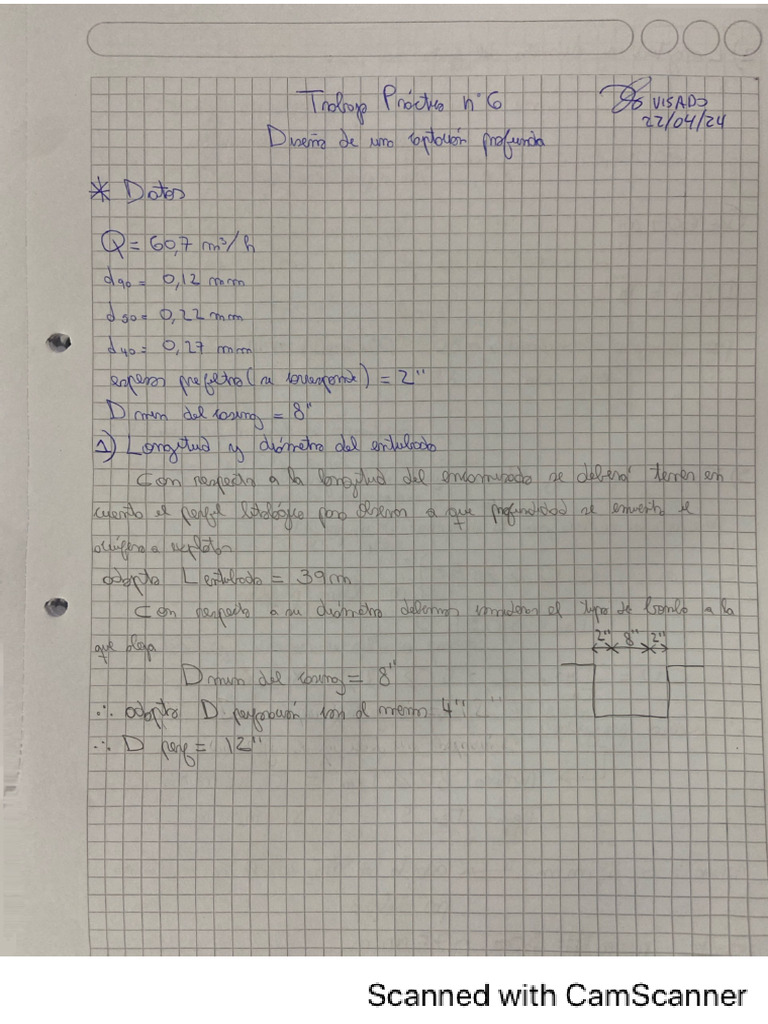 Trabajo Práctico n°6
VISADO
22/04/24
Diseño de una captación profunda
* Datos
Q = 60,7 m³/h
d90 = 0,12 mm
d50 = 0,22 mm
d40 = 0,27 mm
espesor prefiltro (si corresponde) = 2"
D min del casing = 8"
1) Longitud y diámetro del entubado
Con respecto a la longitud del encamisado se deberá tener en
cuenta el perfil litológico para observar a que profundidad se encuentra el
acuífero a explotar
adopto L entubado = 39 m
Con respecto a su diámetro debemos considerar el tipo de bomba a la
que aloja
2" 8" 2"
D min del casing = 8"
∴ adopto D perforación con al menos 4"
∴ D perf = 12"
Scanned with CamScanner